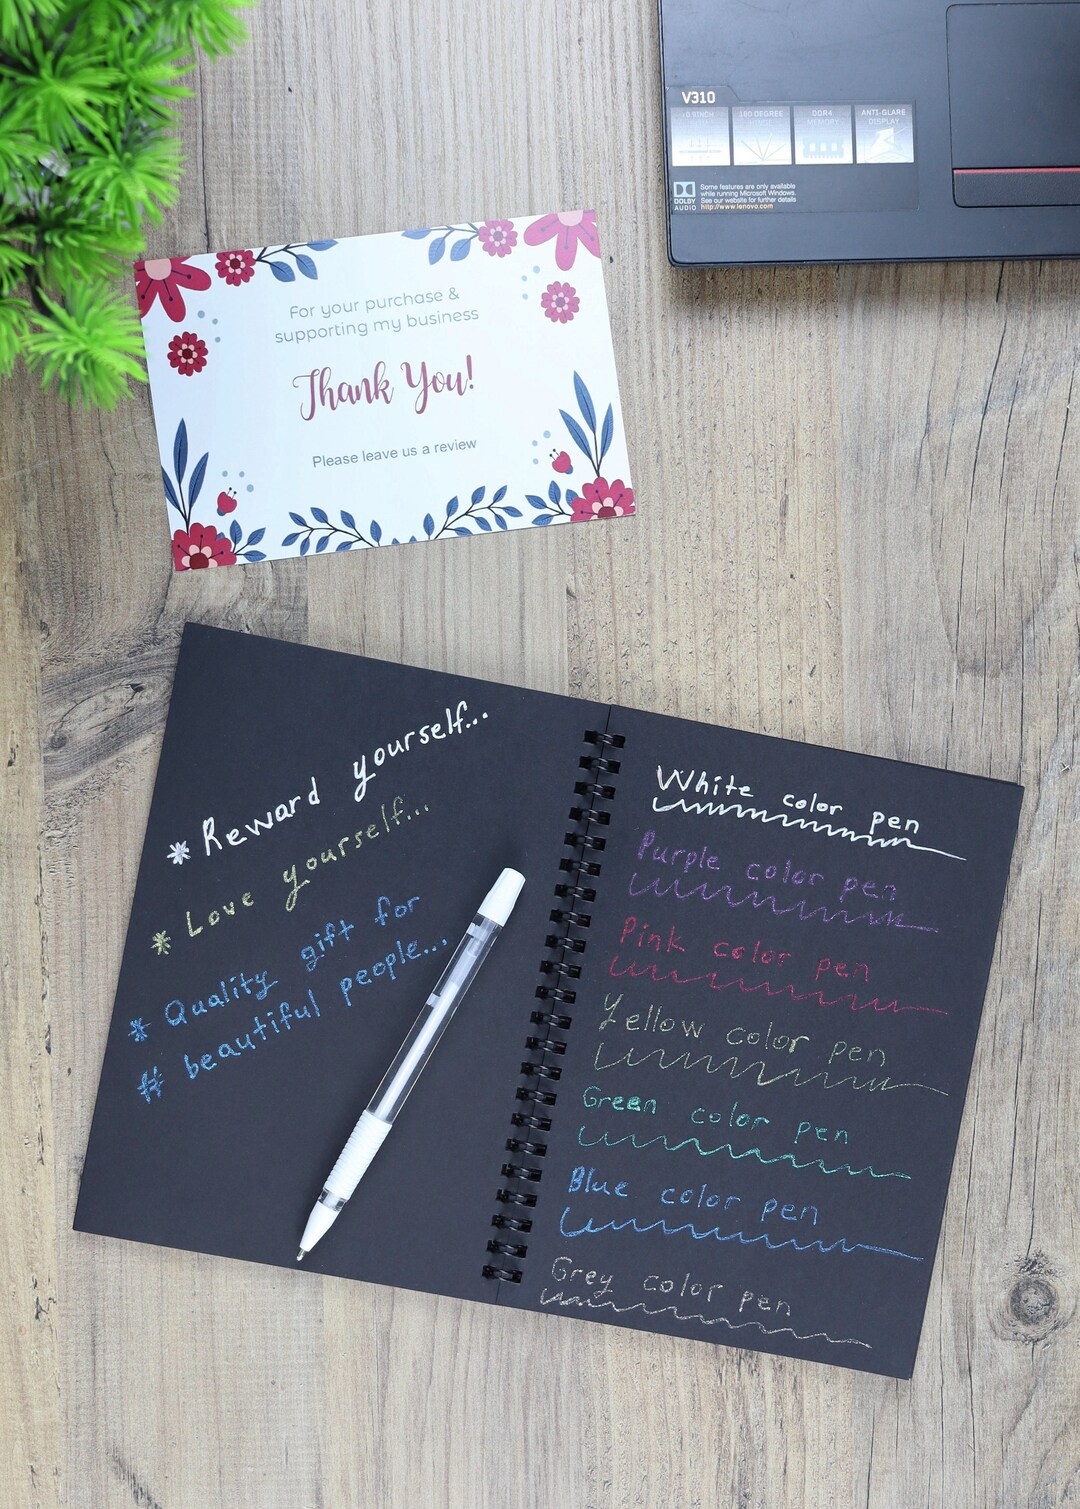 V310
180 DEGREE
DDR4
MEMORY
ANTI-GLARE
DISPLAY
DOLBY
AUDIO
Some features are only available
while running Microsoft Windows.
See our website for further details
http://www.lenovo.com
For your purchase &
supporting my business
Thank You!
Please leave us a review
* Reward yourself...
* Love yourself...
* Quality gift for
# beautiful people...
White color pen
Purple color pen
Pink color pen
Yellow color pen
Green color pen
Blue color pen
Grey color pen